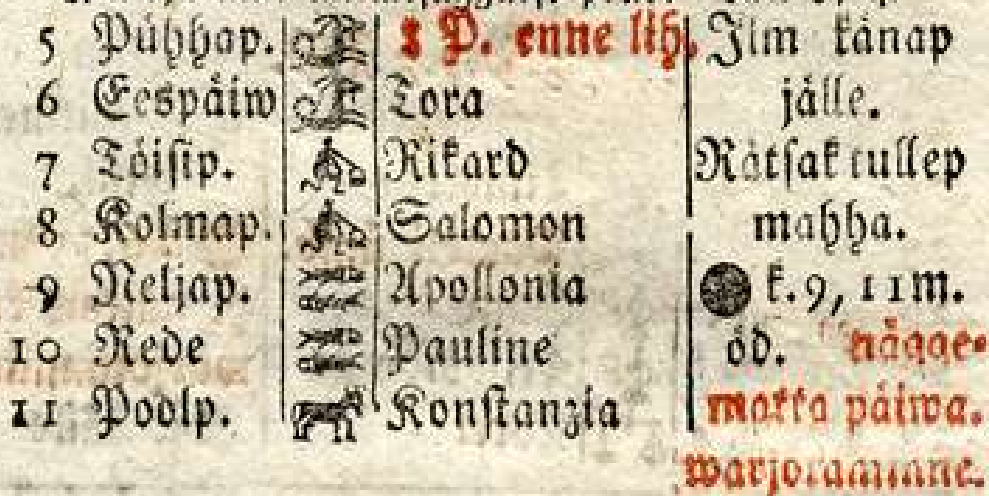 5 Pühhap. 1 P. enne lih. Jlm känap
6 Eespäiw Tora jälle.
7 Töisip. Rikard Rätsak tullep
8 Kolmap. Salomon mahha.
9 Neljap. Apollonia k. 9, 11 m.
10 Rede Pauline öd. nägge-
11 Poolp. Konstanzia matta päiwa.